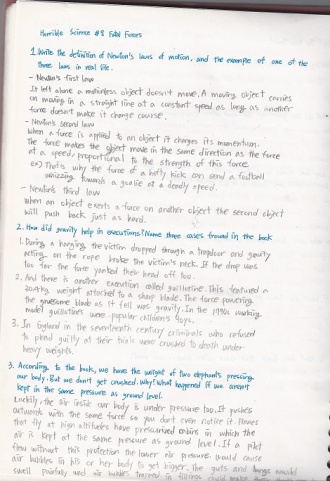 Horrible Science #8 Fatal Forces
1. Write the definition of Newton's laws of motion, and the example of one of the
three laws in real life.
- Newton's first law
If left alone a motionless object doesn't move. A moving object carries
on moving in a straight line at a constant speed as long as another
force doesn't make it change course.
- Newton's second law
When a force is applied to an object it changes its momentum.
The force makes the object move in the same direction as the force
at a speed proportional to the strength of this force.
ex) That's why the force of a hefty kick can send a football
whizzing towards a goalie at a deadly speed.
- Newton's third law
When an object exerts a force on another object the second object
will push back just as hard.
2. How did gravity help in executions? Name three cases found in the book
1. During a hanging the victim dropped through a trapdoor and gravity
acting on the rope broke the victim's neck. If the drop was
too far the force yanked their head off too.
2. And there is another execution called guillotine. This featured a
30.4kg weight attached to a sharp blade. The force powering
the gruesome blade as it fell was gravity. In the 1790s working
model guillotines were popular children's toys.
3. In England in the seventeenth century criminals who refused
to plead guilty at their trials were crushed to death under
heavy weights.
3. According to the book, we have the weight of two elephants pressing
our body. But we don't get crushed. Why? What happened if we aren't
kept in the same pressure as ground level.
Luckily, the air inside our body is under pressure too. It pushes
outwards with the same force so you don't even notice it. Planes
that fly at high altitudes have pressurized cabins in which the
air is kept at the same pressure as ground level. If a pilot
flew without this protection the lower air pressure would cause
air bubbles in his or her body to get bigger. The guts and lungs would
swell painfully and air bubbles trapped in fillings could make